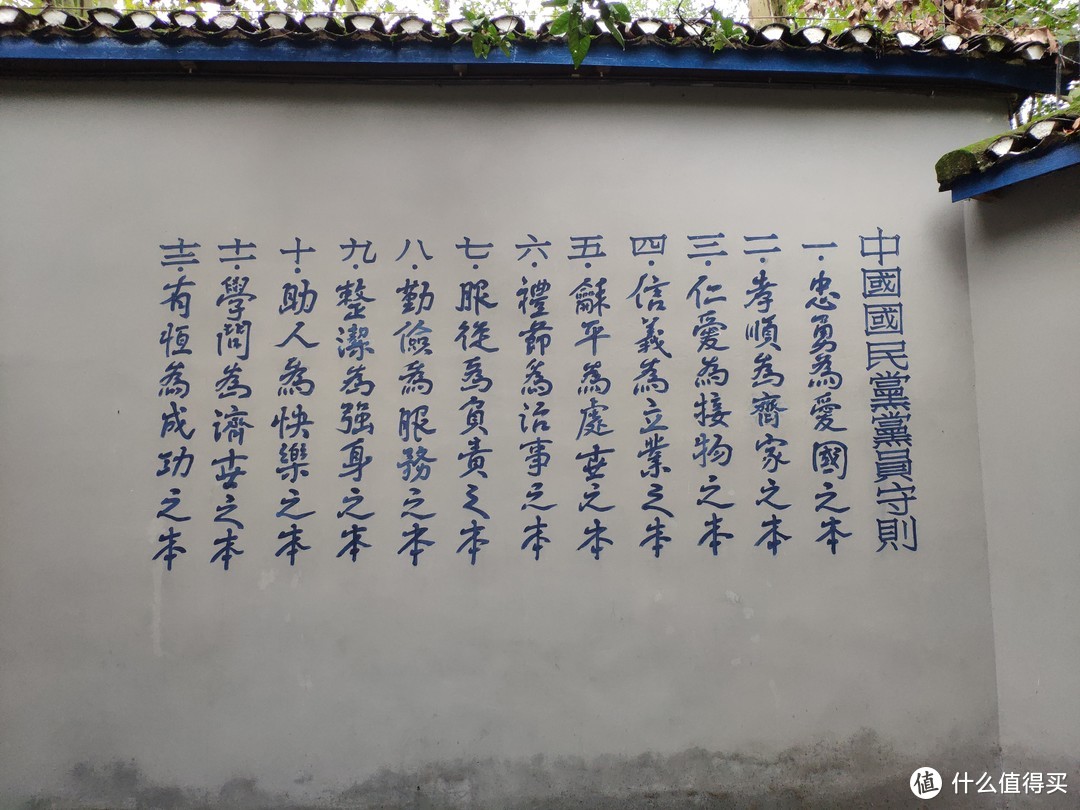 中國國民黨黨員守則
一·忠勇為愛國之本
二·孝順為齊家之本
三·仁愛為接物之本
四·信義為立業之本
五·龢平為處世之本
六·禮節為治事之本
七·服從為負責之本
八·勤儉為服務之本
九·整潔為強身之本
十·助人為快樂之本
十一·學問為濟世之本
十二·有恆為成功之本
值 什么值得买